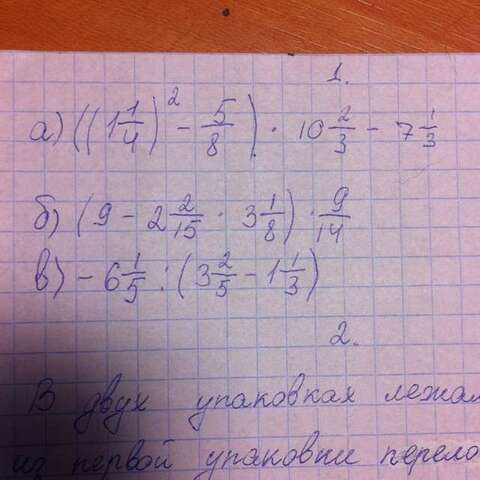 1.
а) ((1 1/4)² - 5/8) · 10 2/3 - 7 1/3
б) (9 - 2 2/15 · 3 1/8) · 9/14
в) - 6 1/5 : (3 2/5 - 1 1/3)
2.
В двух упаковках лежал
из первой упаковки перело